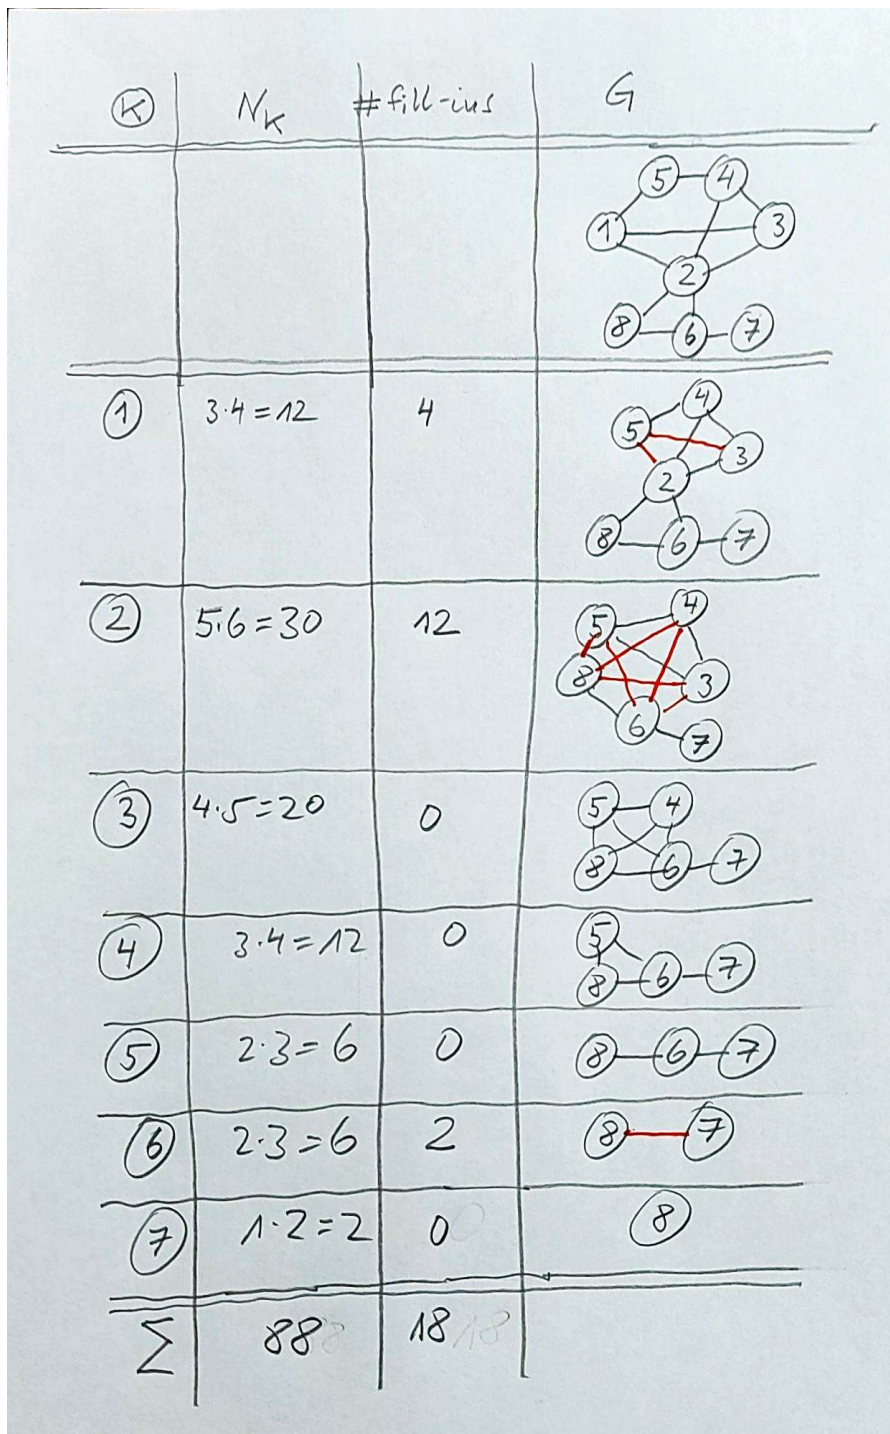 K N_K #fill-ins G
5 4
1 3
2
8 6 7
1 3·4=12 4
4
5
3
2
8 6 7
2 5·6=30 12
4
5
8 3
6
7
3 4·5=20 0
5 4
8 6 7
4 3·4=12 0
5
8 6 7
5 2·3=6 0 8 6 7
6 2·3=6 2 8 7
7 1·2=2 0 8
Σ 88 18